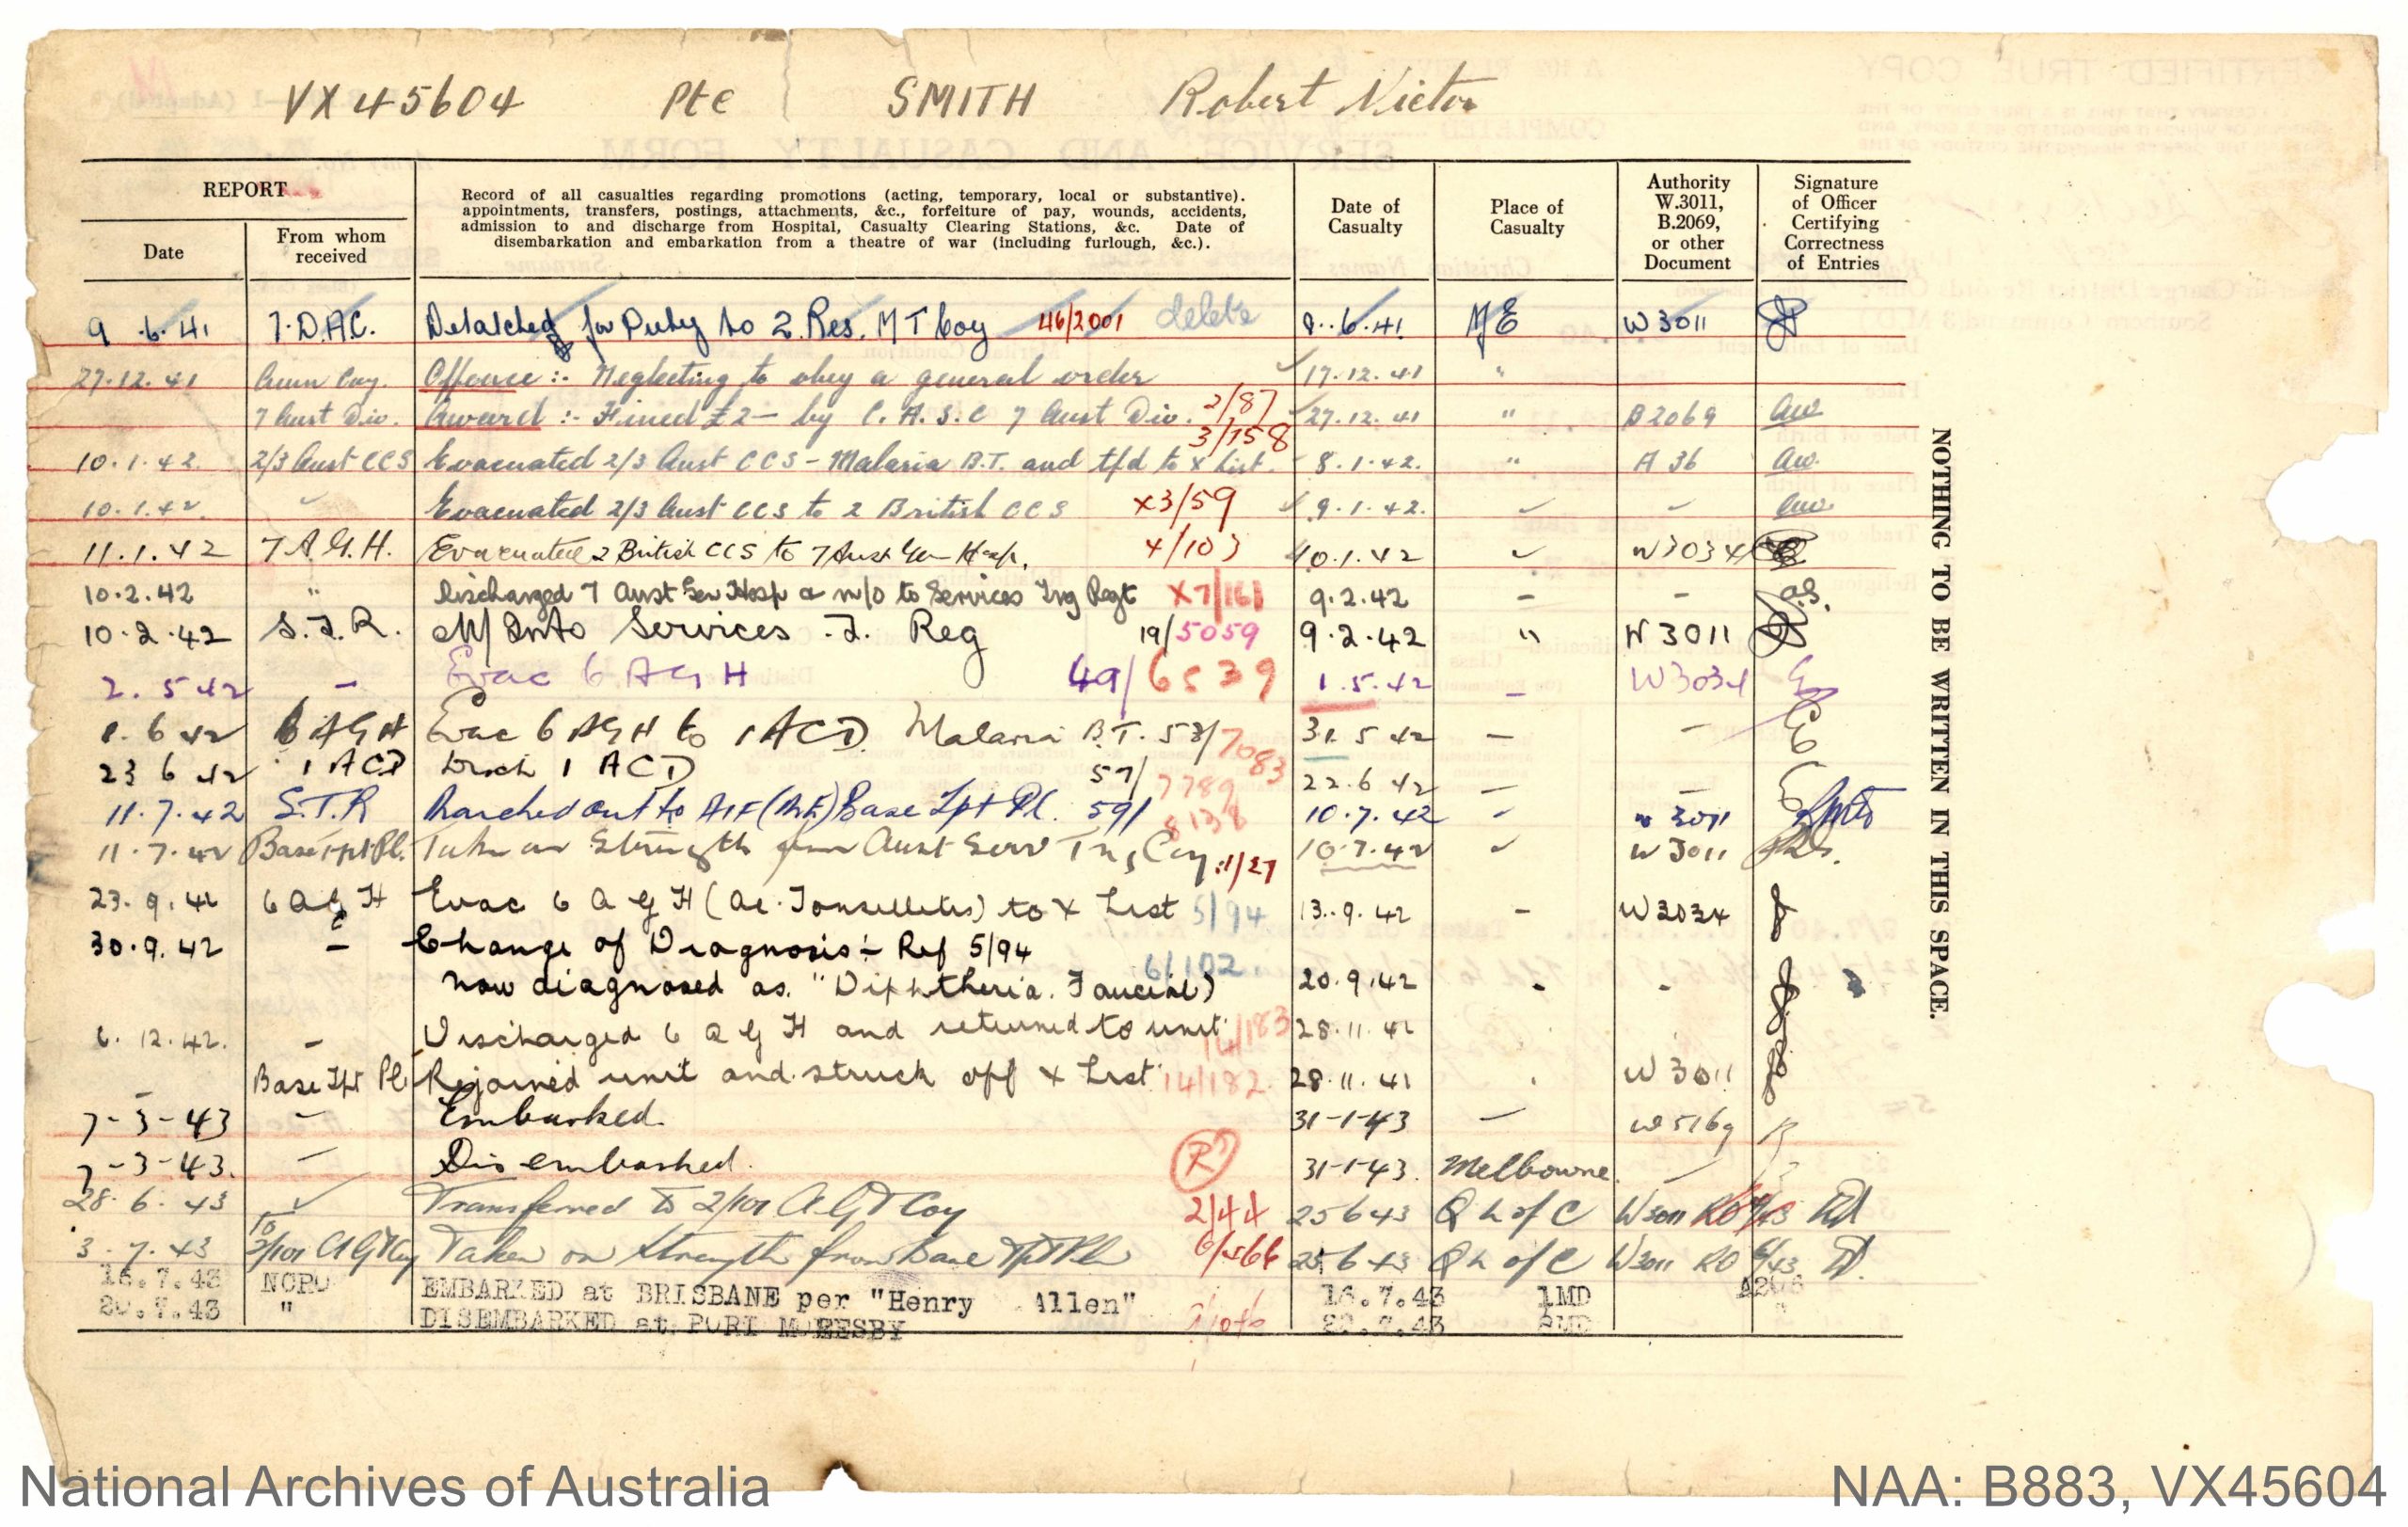 VX45604 Pte SMITH Robert Victor
REPORT
Date
From whom received
Record of all casualties regarding promotions (acting, temporary, local or substantive).
appointments, transfers, postings, attachments, &c., forfeiture of pay, wounds, accidents,
admission to and discharge from Hospital, Casualty Clearing Stations, &c. Date of
disembarkation and embarkation from a theatre of war (including furlough, &c.).
Date of Casualty
Place of Casualty
Authority W.3011, B.2069, or other Document
Signature of Officer Certifying Correctness of Entries
9.6.41 7.D.A.C. Detatched for Duty to 2 Res. M T Coy 46/2001 delete 9.6.41 M E W3011
27.12.41 Offence :- Neglecting to obey a general order 17.12.41 "
7 Aust Div. Award :- Fined £2- by C.A.S.C 7 Aust Div. 2/87 27.12.41 " B2069 aw
3/158
10.1.42. 2/3 Aust CCS Evacuated 2/3 Aust CCS - Malaria B.T. and tfd to X List. 8.1.42. " A 36 aw.
10.1.42. Evacuated 2/3 Aust CCS to 2 British CCS X3/59 9.1.42. aw.
11.1.42 7 A.G.H. Evacuated 2 British CCS to 7 Aust Gen Hosp. 4/103 10.1.42 W3034
10.2.42 " Discharged 7 Aust Gen Hosp & m/o to Services Trg Regt X7/161 9.2.42 - - a.s.
10.2.42 S.T.R. M/Into Services .T. Reg 19/5059 9.2.42 " W3011
2.5 42 - Evac 6 AGH 49/6539 1.5.42 - W3034
1.6 42 6 AGH Evac 6 AGH to 1 ACD. Malaria B.T. 53/7083 31.5 42 - -
23 6 42 1 ACD Disch 1 ACD 57/7789 22.6 42 - -
11.7.42 S.T.R Marched out to AIF (M.E) Base Tpt Pl. 59/8138 10.7.42 W3011
11.7.42 Base Tpt Pl. Taken on Strength from Aust Serv Trg Coy 1/27 10.7.42 W3011
23.9.42 6 AGH Evac 6 AGH (Ac. Tonselletis) to X List 5/94 13.9.42 - W3034
30.9.42 - Change of Diagnosis :- Ref 5/94
6/102
now diagnosed as. "Diphtheria. Faucial) 20.9.42 - -
6.12.42. - Discharged 6 AGH and returned to unit 14/183 28.11.42
- Base Tpt Pl. Rejoined unit and struck off X List 14/182 28.11.41 W3011
7-3-43 - Embarked. 31-1-43 - W5169
7-3-43. - Disembarked. R 31-1-43. Melbourne
28.6.43 Transferred to 2/101 A.G.T Coy 2/44 25 6 43 Q L of C W3011
3.7.43 2/101 AGT Coy Taken on strength from Base Tpt Pln 6/566 25 6 43 Q L of C W3011 RO 6/43
16.7.43 NCRO EMBARKED at BRISBANE per "Henry Allen" 16.7.43 1MD A206
20.7.43 " DISEMBARKED at PORT MORESBY 20.7.43 8MD "
NOTHING TO BE WRITTEN IN THIS SPACE.
National Archives of Australia
NAA: B883, VX45604